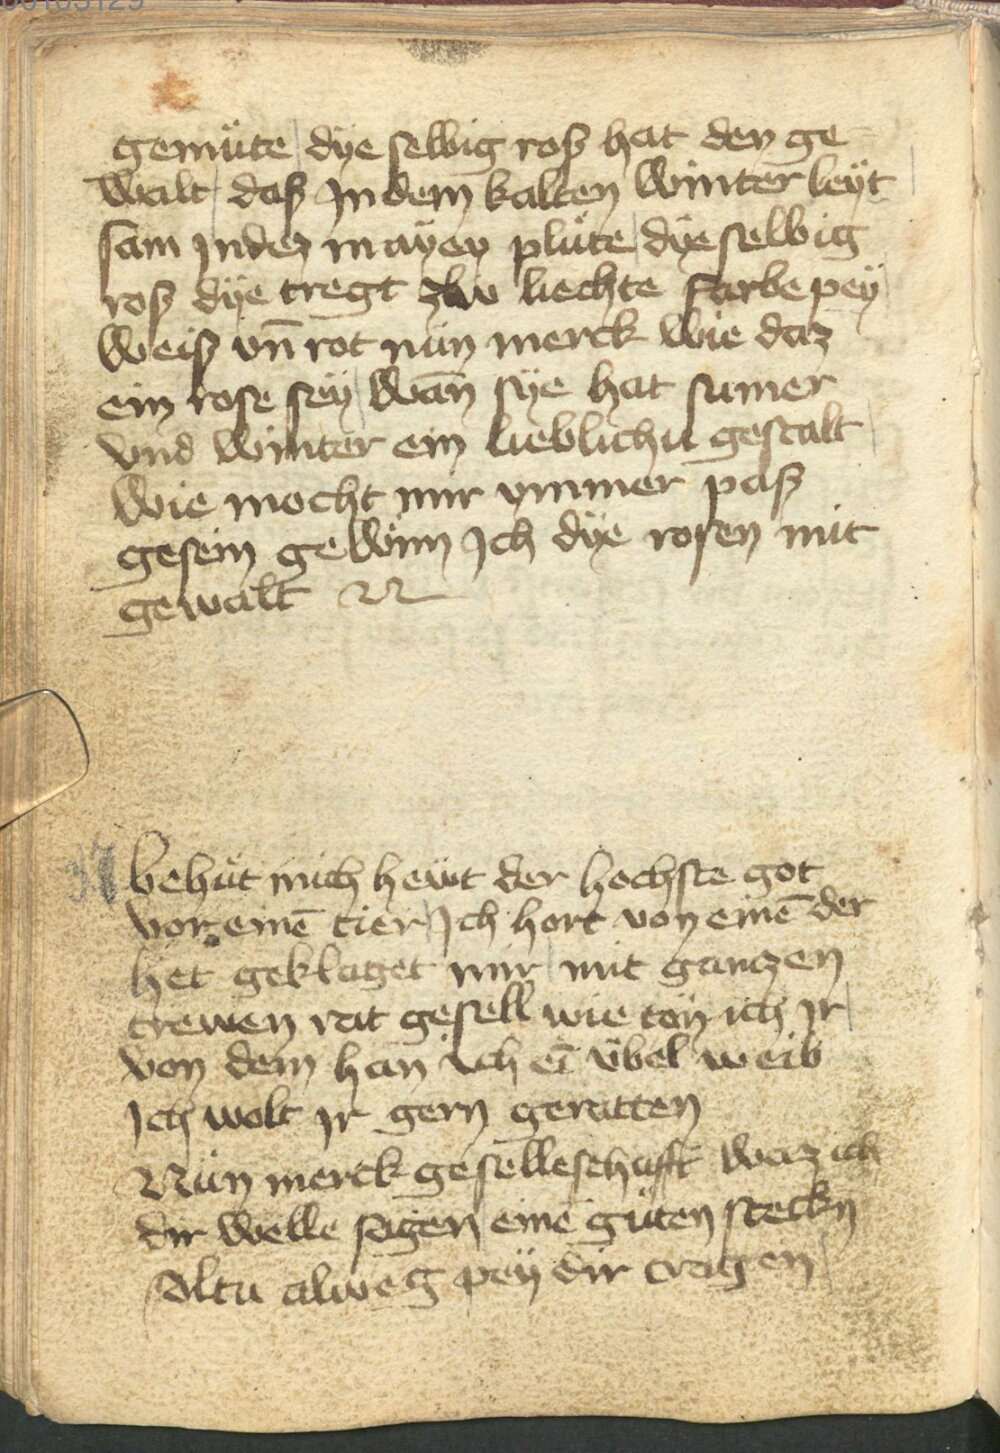 00105129
gemüte dÿe selbig roß hat den ge
walt daß In dem kalten winter leÿt
sam In dez maÿen plüte dÿe selbig
roß dÿe tregt zwo liechte farbe peÿ
Weiß vn̄ rot nün merck wie daz
ein rose seÿ Wan̄ sÿe hat sumer
vnd winter ein lieblichu gestalt
Wie mocht mir ymmer paß
gesein gewinn Ich dÿe rosen mit
gewalt
37 behüt mich hewt der hochste got
vor eine͂ tier Ich hort von eine͂ der
het geklaget mir mit ganzen
trewen rat gesell wie toÿ ich Ir
von dem han ich ei͂ übel weib
Ich wolt Ir gern geratten
Nün merck geselleschafft waz ich
dir welle sagen eine guten steckn
soltu alweg peÿ dir tragen